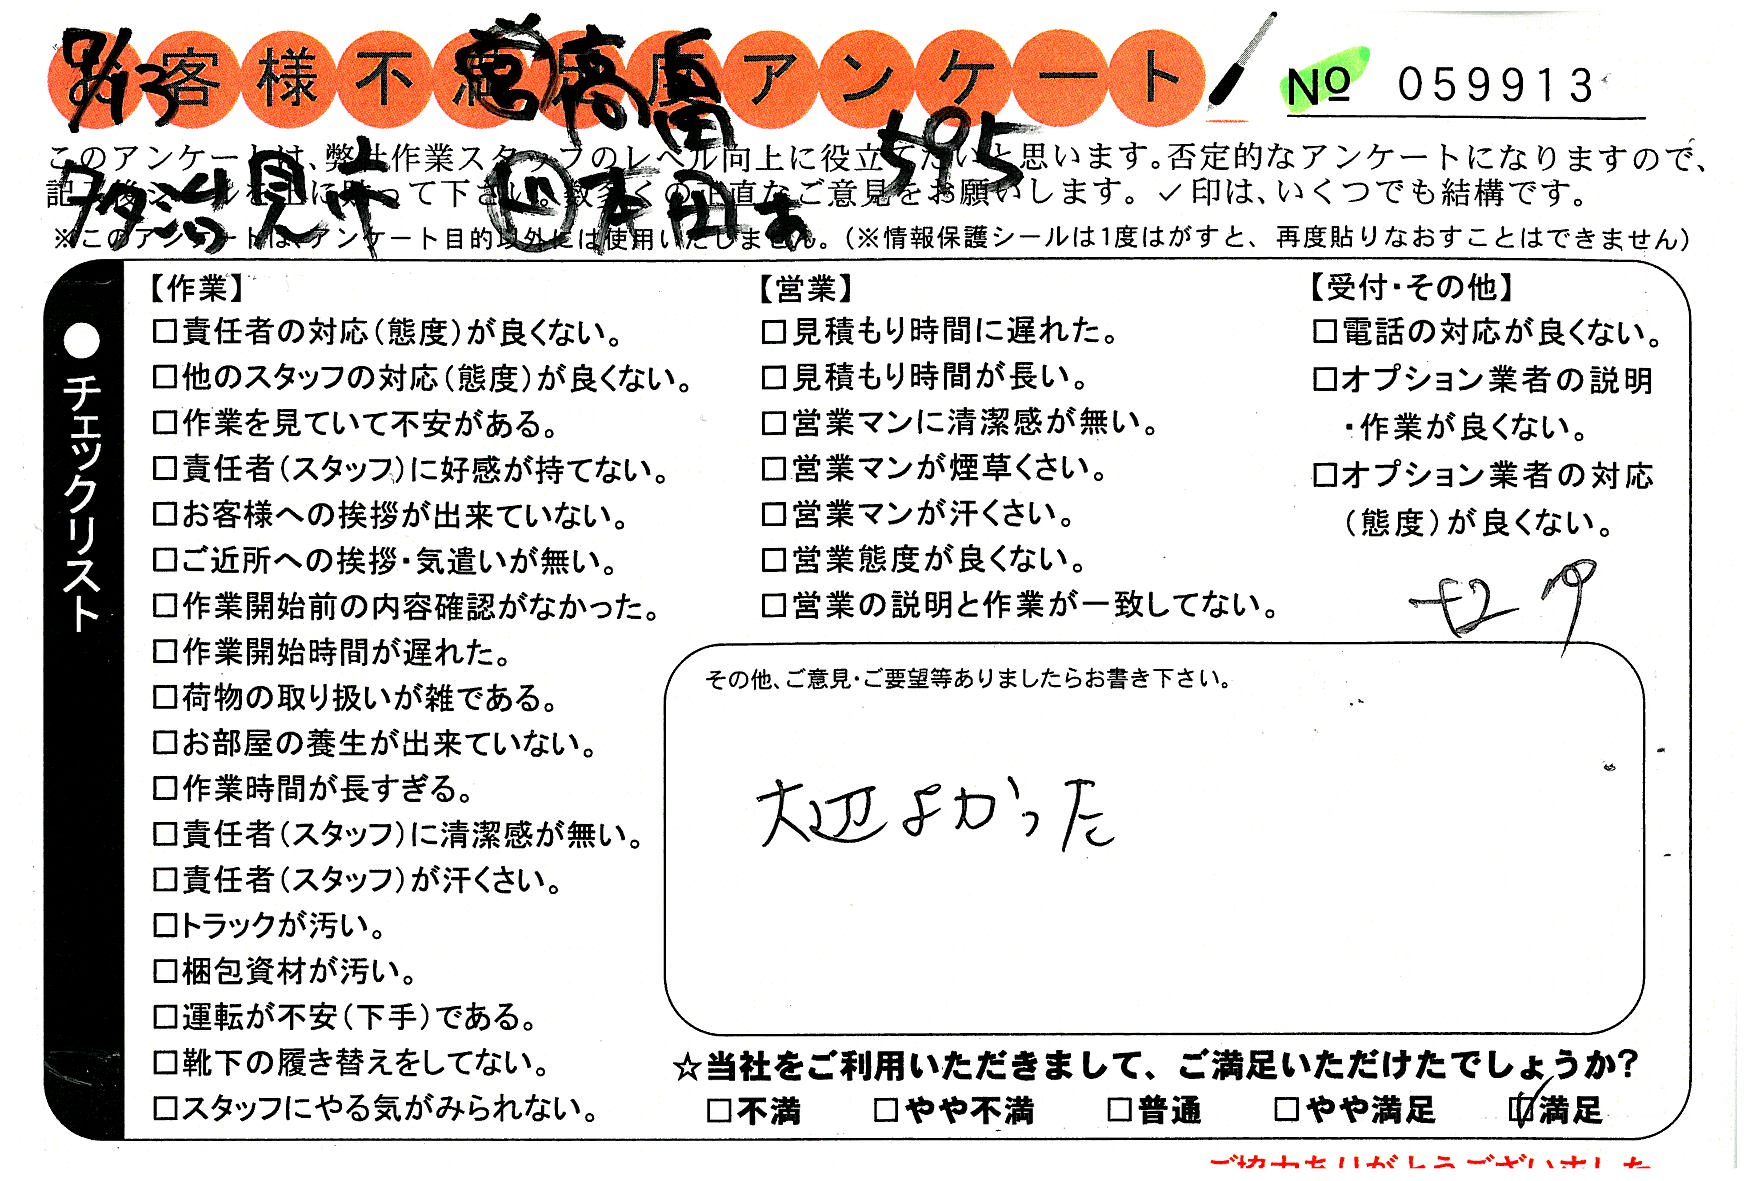 お客様不満足度アンケート No 059913
9/13 営 高畠
595
このアンケートは、弊社作業スタッフのレベル向上に役立てたいと思います。否定的なアンケートになりますので、
記入後シールを上に貼って下さい。数多くの正直なご意見をお願いします。✓印は、いくつでも結構です。
多治見市 ド 本田あ
※このアンケートは、アンケート目的以外には使用いたしません。(※情報保護シールは1度はがすと、再度貼りなおすことはできません)
●チェックリスト
【作業】
□責任者の対応(態度)が良くない。
□他のスタッフの対応(態度)が良くない。
□作業を見ていて不安がある。
□責任者(スタッフ)に好感が持てない。
□お客様への挨拶が出来ていない。
□ご近所への挨拶・気遣いが無い。
□作業開始前の内容確認がなかった。
□作業開始時間が遅れた。
□荷物の取り扱いが雑である。
□お部屋の養生が出来ていない。
□作業時間が長すぎる。
□責任者(スタッフ)に清潔感が無い。
□責任者(スタッフ)が汗くさい。
□トラックが汚い。
□梱包資材が汚い。
□運転が不安(下手)である。
□靴下の履き替えをしてない。
□スタッフにやる気がみられない。
【営業】
□見積もり時間に遅れた。
□見積もり時間が長い。
□営業マンに清潔感が無い。
□営業マンが煙草くさい。
□営業マンが汗くさい。
□営業態度が良くない。
□営業の説明と作業が一致してない。
【受付・その他】
□電話の対応が良くない。
□オプション業者の説明
・作業が良くない。
□オプション業者の対応
(態度)が良くない。
その他、ご意見・ご要望等ありましたらお書き下さい。
大辺よかった
☆当社をご利用いただきまして、ご満足いただけたでしょうか?
□不満 □やや不満 □普通 □やや満足 ☑満足
ご協力ありがとうございました